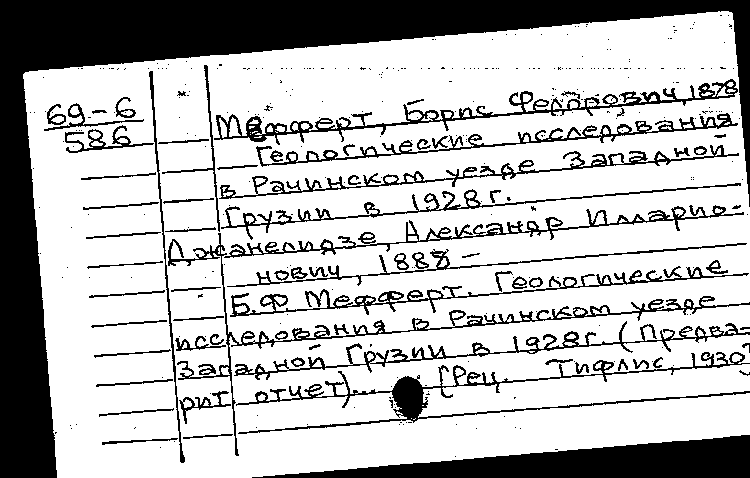 69-6
586
Мефферт, Борис Федорович, 1878
Геологические исследования
в Рачинском уезде Западной
Грузии в 1928г.
Джанелидзе, Александр Илларио-
нович, 1888-
Б.Ф. Мефферт. Геологические
исследования в Рачинском уезде
Западной Грузии в 1928г. (Предва-
рит. отчет)... [Рец. Тифлис, 1930]